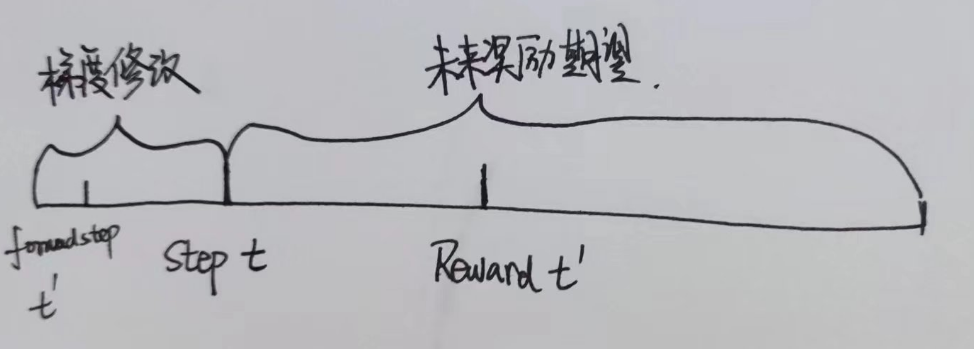 梯度修改
未来奖励期望.
forwardstep
t'
Step t
Reward t'